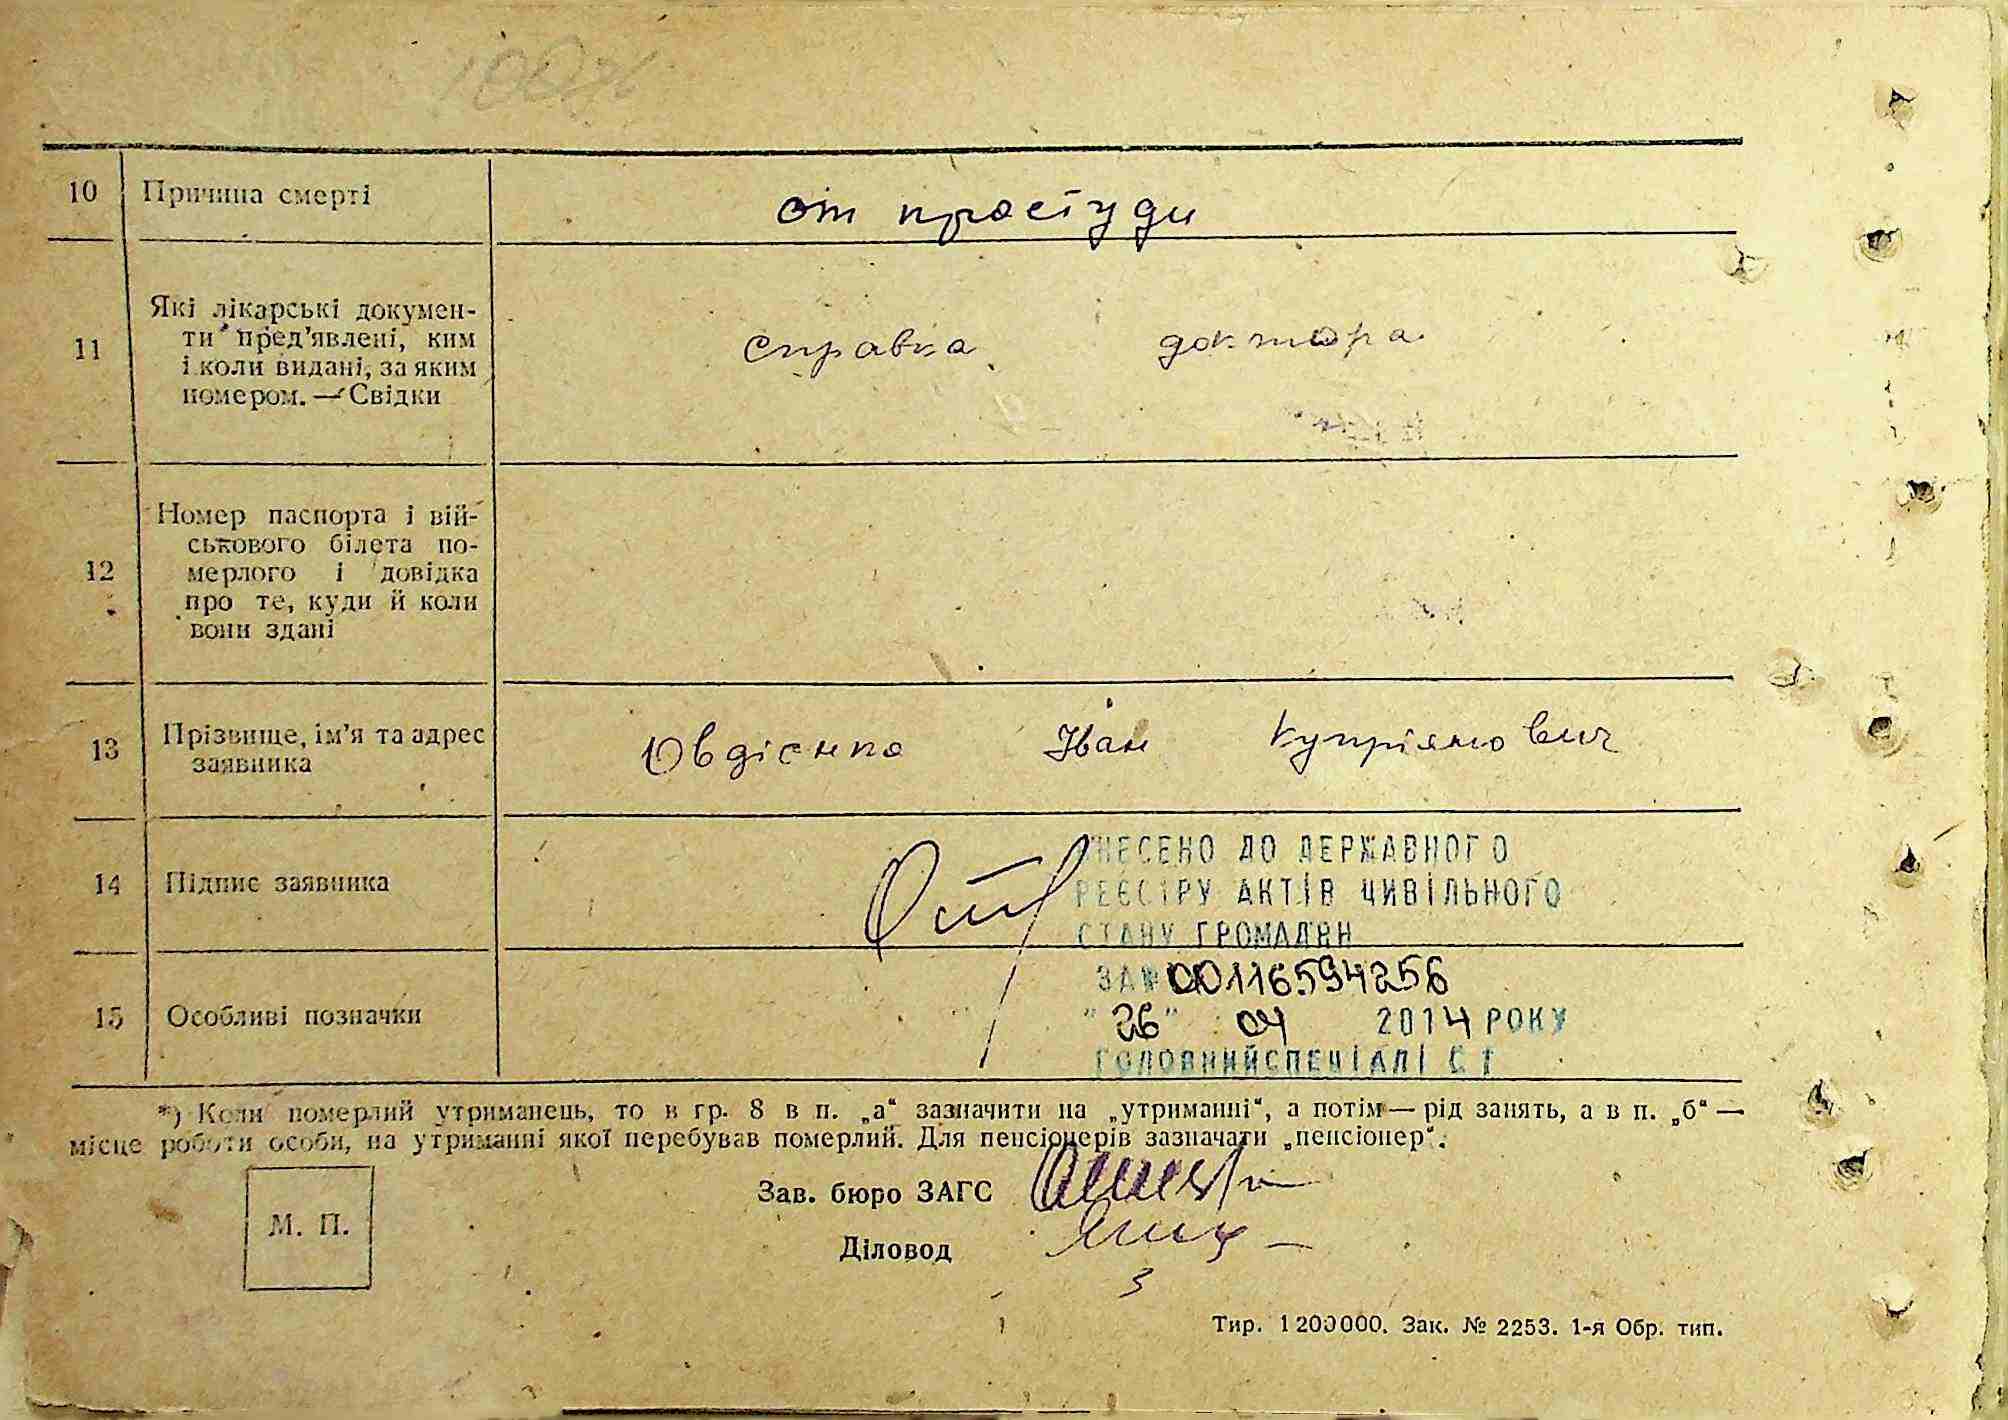 10 Причина смерті от простуди
11 Які лікарські докумен-
ти пред’явлені, ким
і коли видані, за яким
номером. — Свідки
справка доктора
12 Номер паспорта і вій-
ськового білета по-
мерлого і довідка
про те, куди й коли
вони здані
13 Прізвище, ім’я та адрес
заявника
Овдієнко Іван Купріянович
14 Підпис заявника
ВНЕСЕНО ДО ДЕРЖАВНОГО
РЕЄСТРУ АКТІВ ЦИВІЛЬНОГО
СТАНУ ГРОМАДЯН
ЗА № 00116594256
15 Особливі позначки
"26" 04 2014 РОКУ
ГОЛОВНИЙ СПЕЦІАЛІСТ
*) Коли померлий утриманець, то в гр. 8 в п. „а“ зазначити на „утриманні“, а потім — рід занять, а в п. „б“ —
місце роботи особи, на утриманні якої перебував померлий. Для пенсіонерів зазначати „пенсіонер“.
Зав. бюро ЗАГС
М. П.
Діловод
Тир. 1200000. Зак. № 2253. 1-я Обр. тип.